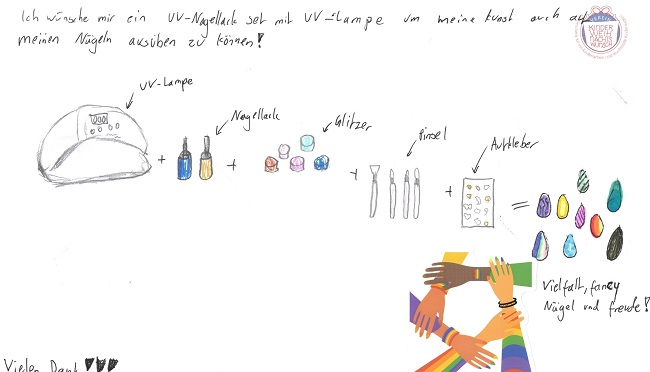 Ich wünsche mir ein UV-Nagellack set mit UV-Lampe um meine kunst auch auf
meinen Nägeln ausüben zu können!
VEREIN
KINDER
WEIH
NACHTS
WUNSCH
UV-Lampe
Nagellack
Glitzer
Pinsel
Aufkleber
+ + + + =
Vielfalt, fancy
Nägel und freude!
Vielen Dank